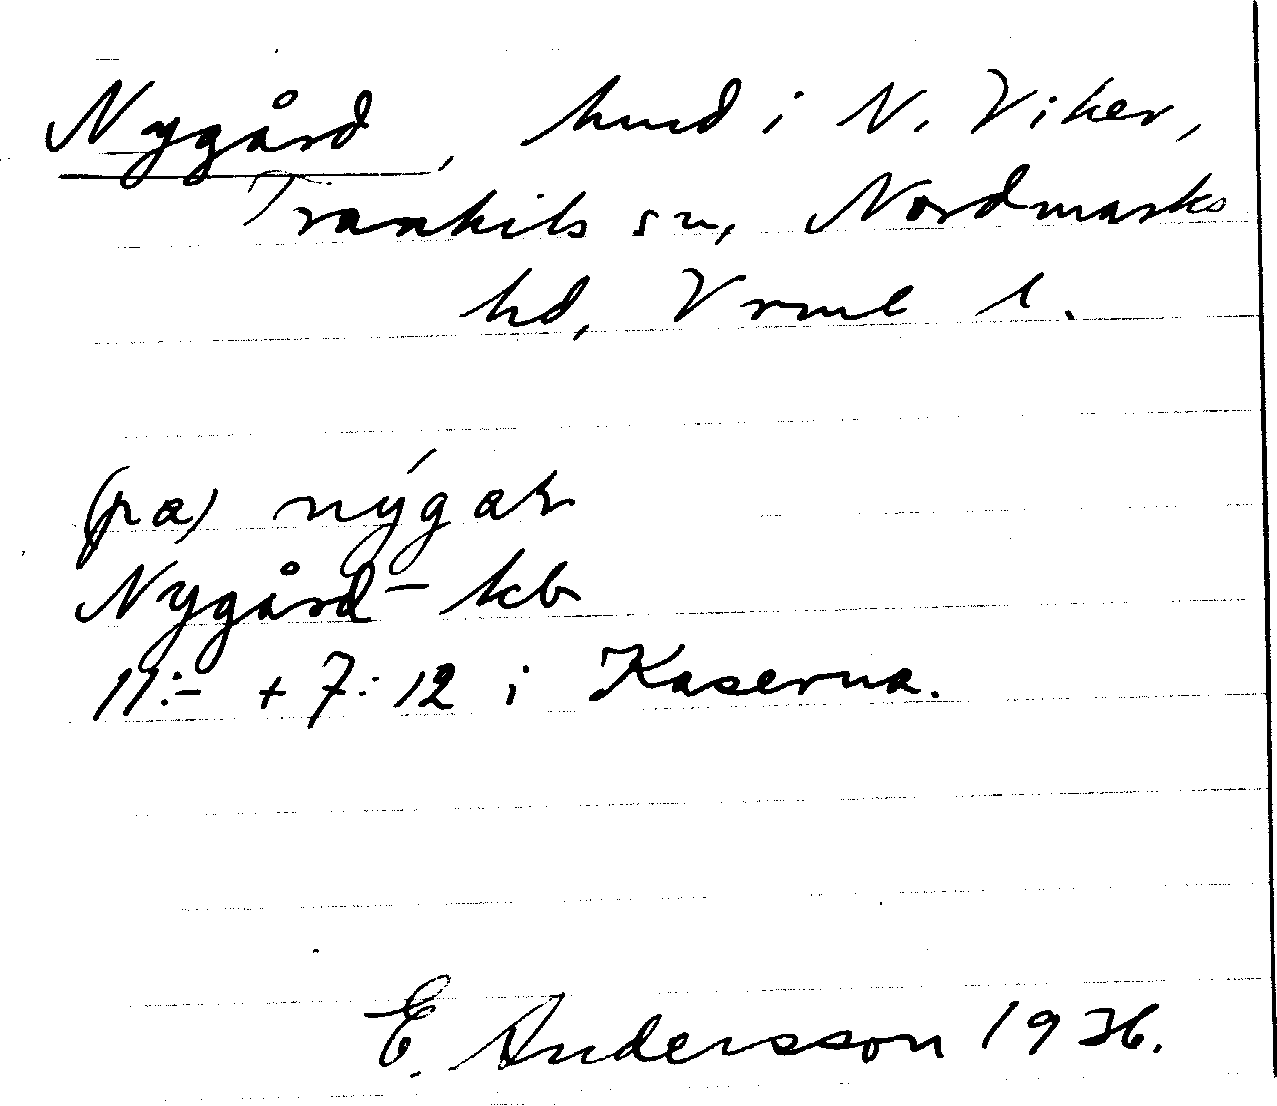 Nygård, hmd i N. Viker,
Trankils sn, Nordmarks
hd, Vrml l.
(pa) nýgaɽ
Nygård - kb
11:- + 7:12 i Kaserna.
E. Andersson 1936.